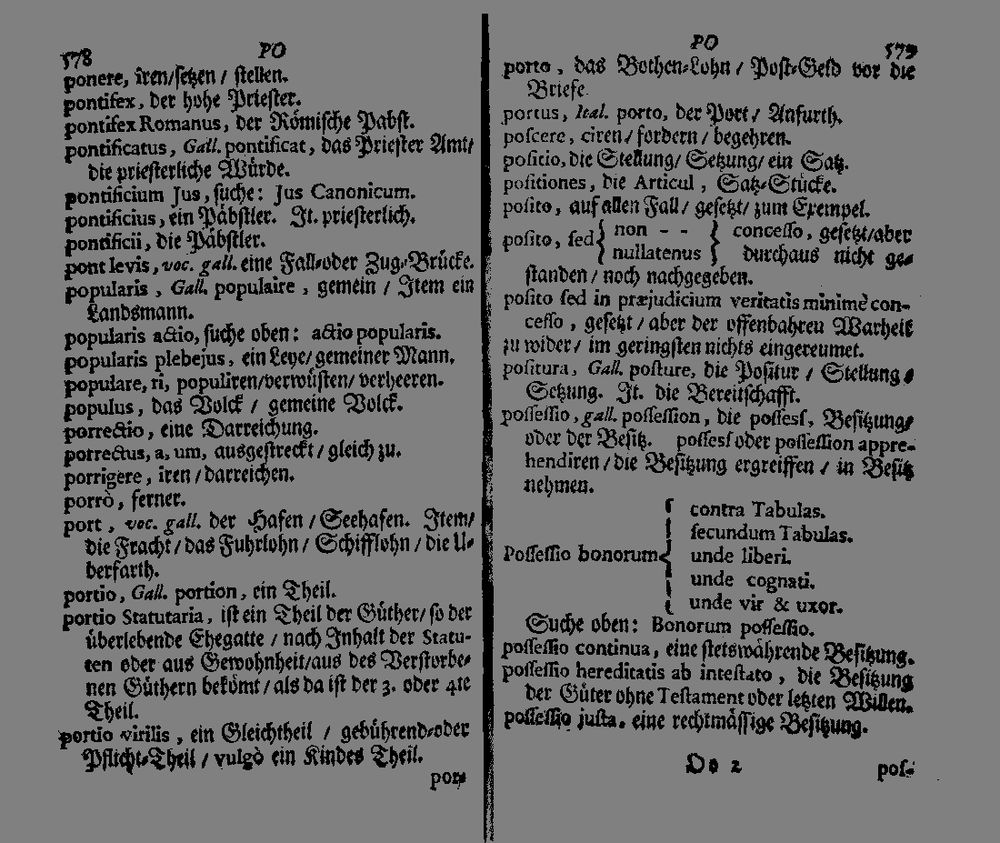 578 PO
ponere, iren/setzen / stellen.
pontifex, der hohe Priester.
pontifex Romanus, der Römische Pabst.
pontificatus, Gall. pontificat, das Priester Amt/
die priesterliche Würde.
pontificium Jus, suche: Jus Canonicum.
pontificius, ein Päbstler. It. priesterlich.
pontificii, die Päbstler.
pont levis, voc. gall. eine Fall-oder Zug-Brücke.
popularis, Gall. populaire, gemein / Item ein
Landsmann.
popularis actio, suche oben: actio popularis.
popularis plebejus, ein Leye/gemeiner Mann.
populare, ri, populiren/verwüsten/ verheeren.
populus, das Volck / gemeine Volck.
porrectio, eine Darreichung.
porrectus, a, um, ausgestreckt/gleich zu.
porrigere, iren/darreichen.
porrò, ferner.
port, voc. gall. der Hafen/Seehafen. Item/
die Fracht/das Fuhrlohn/ Schifflohn/die U-
berfarth.
portio, Gall. portion, ein Theil.
portio Statutaria, ist ein Theil der Güther/so der
überlebende Ehegatte / nach Inhalt der Statu-
ten oder aus Gewohnheit/aus des Verstorbe-
nen Güthern bekömt/als da ist der 3. oder 4te
Theil.
portio virilis, ein Gleichtheil / gebührend-oder
Pflicht-Theil / vulgò ein Kindes Theil.
por-
PO 579
porto, das Bothen-Lohn/ Post-Geld vor die
Briefe
portus, Ital. porto, der Port/ Anfurth.
poscere, ciren/fordern/ begehren.
positio, die Stellung/ Setzung/ ein Satz.
positiones, die Articul, Satz-Stücke.
posito, auf allen Fall/ gesetzt/ zum Exempel.
posito, sed { non - - } concesso, gesetzt/aber
{ nullatenus } durchaus nicht ge-
standen/ noch nachgegeben.
posito sed in præjudicium veritatis minimè con-
cesso, gesetzt/ aber der offenbahren Warheit
zu wider/ im geringsten nichts eingereumet.
positura, Gall. posture, die Positur / Stellung/
Setzung. It. die Bereitschafft.
possessio, gall. possession, die possess, Besitzung/
oder der Besitz. possess oder possession appre-
hendiren/die Besitzung ergreiffen/ in Besitz
nehmen.
Possessio bonorum { contra Tabulas.
secundum Tabulas.
unde liberi.
unde cognati.
unde vir & uxor.
Suche oben: Bonorum possessio.
possessio continua, eine stetswährende Besitzung.
possessio hereditatis ab intestato, die Besitzung
der Güter ohne Testament oder letzten Willen.
possessio justa. eine rechtmässige Besitzung.
Oo 2 pos-